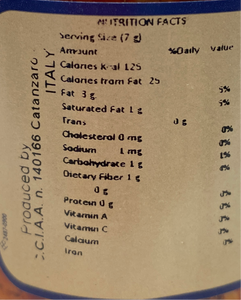 NUTRITION FACTS
Serving Size (7 g)
Amount %Daily Value
Calories Kcal 125
Calories from Fat 25
Fat 3 g 5%
Saturated Fat 1 g 5%
Trans 0 g
Cholesterol 0 mg 0%
Sodium 1 mg 1%
Carbohydrate 1 g 0%
Dietary Fiber 1 g 0%
0 g
Protein 0 g 0%
Vitamin A 0%
Vitamin C 0%
Calcium 0%
Iron
Produced by
C.I.A.A. n. 140166 Catanzaro
ITALY